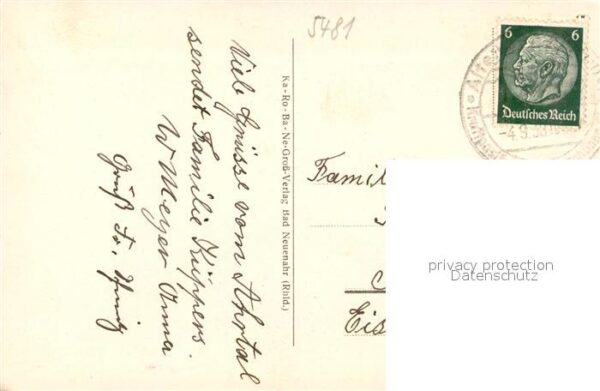 5481
Viele Grüsse vom Ahrtal
sendet Familie Küppers.
W Meyer Anna
Gruß Fr.
Ka-Ro-Ba-Ne-Groß-Verlag Bad Neuenahr (Rhld.)
6 6
Deutsches Reich
-4.9.38
Famil
Eis
privacy protection
Datenschutz